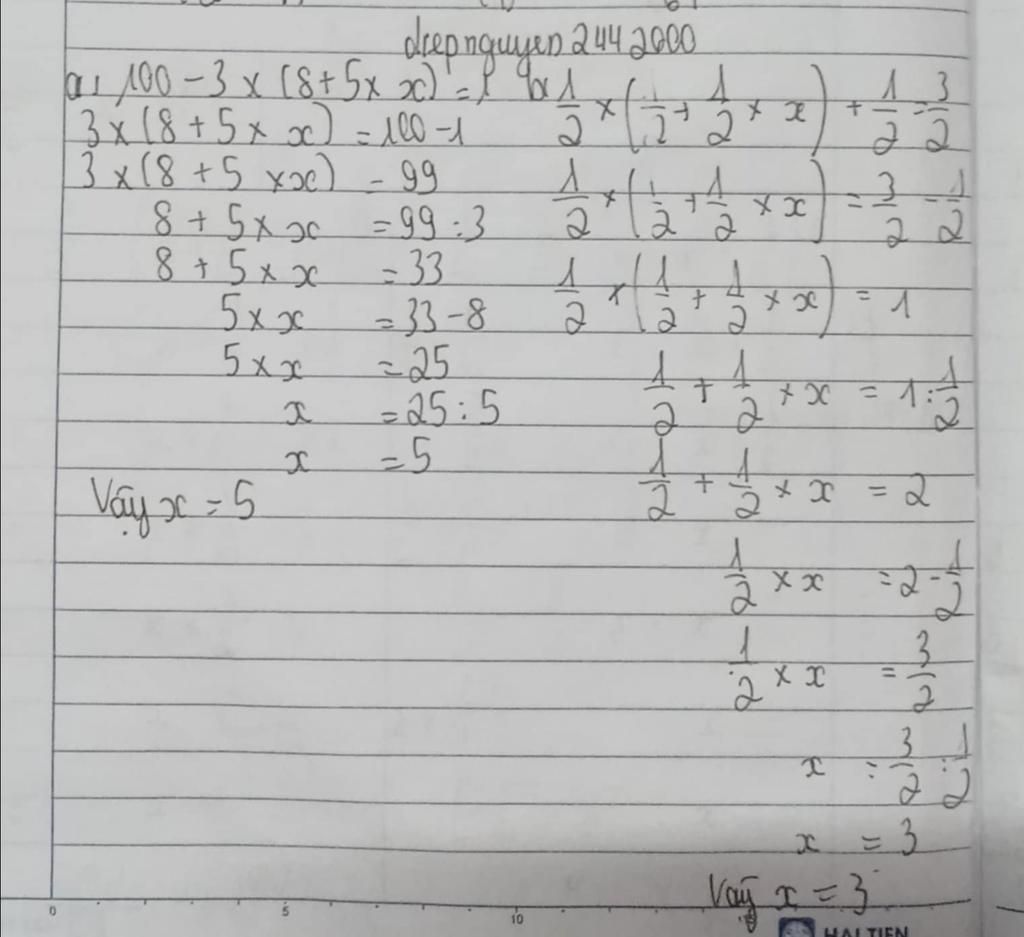 diepnguyen2442000
a, 100 - 3 x (8 + 5 x x) = 1
3 x (8 + 5 x x) = 100 - 1
3 x (8 + 5 x x) = 99
8 + 5 x x = 99 : 3
8 + 5 x x = 33
5 x x = 33 - 8
5 x x = 25
x = 25 : 5
x = 5
Vậy x = 5
b, 1/2 x (1/2 + 1/2 x x) + 1/2 = 3/2
1/2 x (1/2 + 1/2 x x) = 3/2 - 1/2
1/2 x (1/2 + 1/2 x x) = 1
1/2 + 1/2 x x = 1 : 1/2
1/2 + 1/2 x x = 2
1/2 x x = 2 - 1/2
1/2 x x = 3/2
x = 3/2 : 1/2
x = 3
Vậy x = 3
0 5 10
HẢI TIẾN